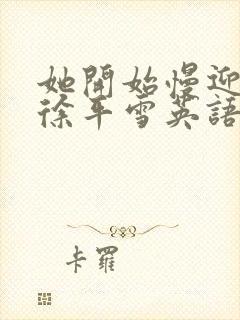 她開始慢迎
徐平雪英語
卡羅